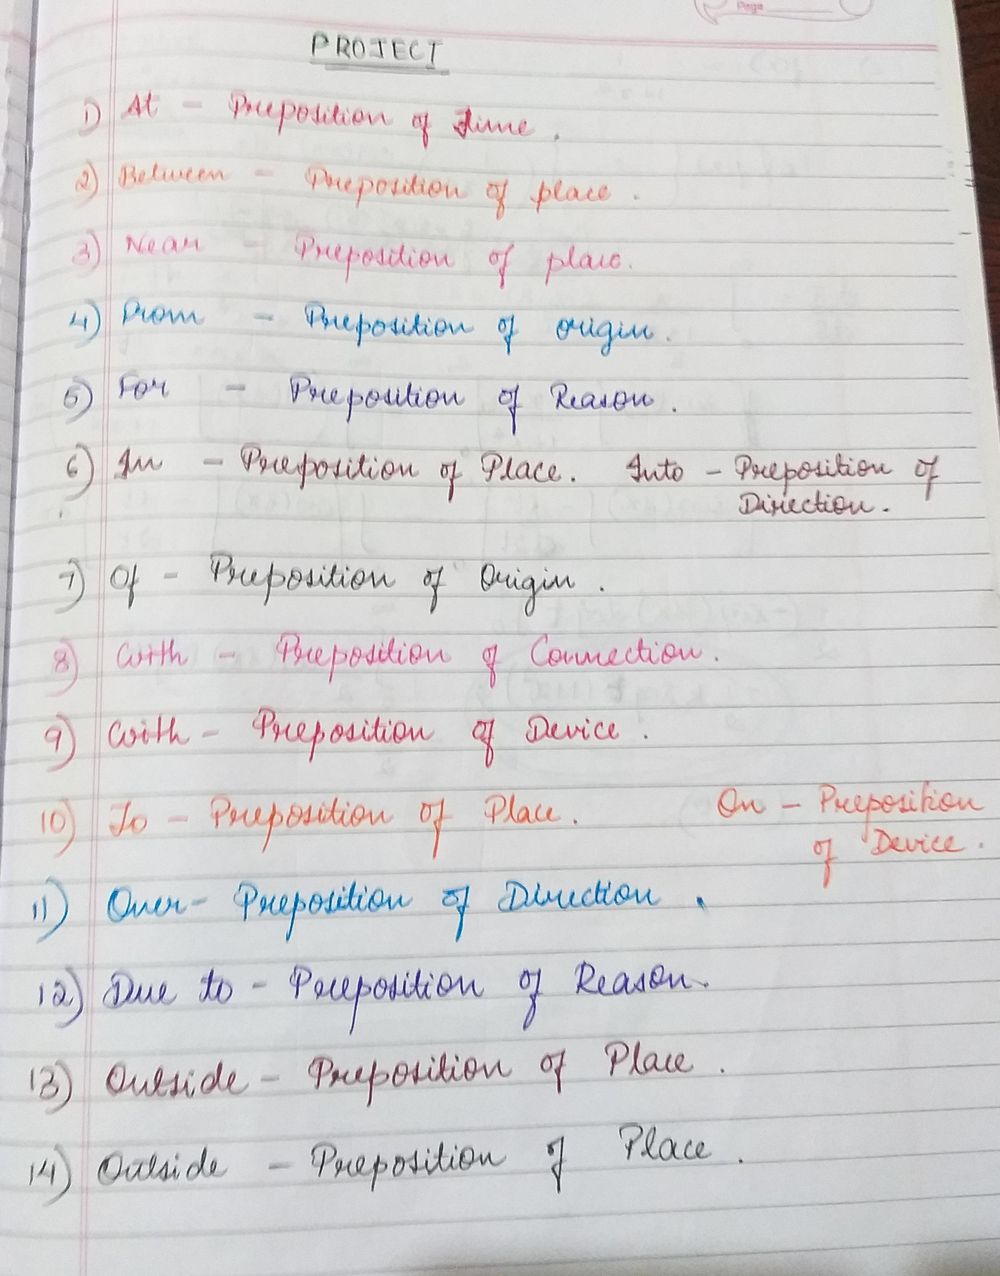 Page
PROJECT
1) At - Preposition of time.
2) Between - Preposition of place.
3) Near - Preposition of place.
4) From - Preposition of origin.
5) For - Preposition of Reason.
6) In - Preposition of Place. Into - Preposition of
Direction.
7) Of - Preposition of Origin.
8) With - Preposition of Connection.
9) With - Preposition of Device.
10) To - Preposition of Place. On - Preposition
of Device.
11) Over - Preposition of Direction.
12) Due to - Preposition of Reason.
13) Outside - Preposition of Place.
14) Outside - Preposition of Place.